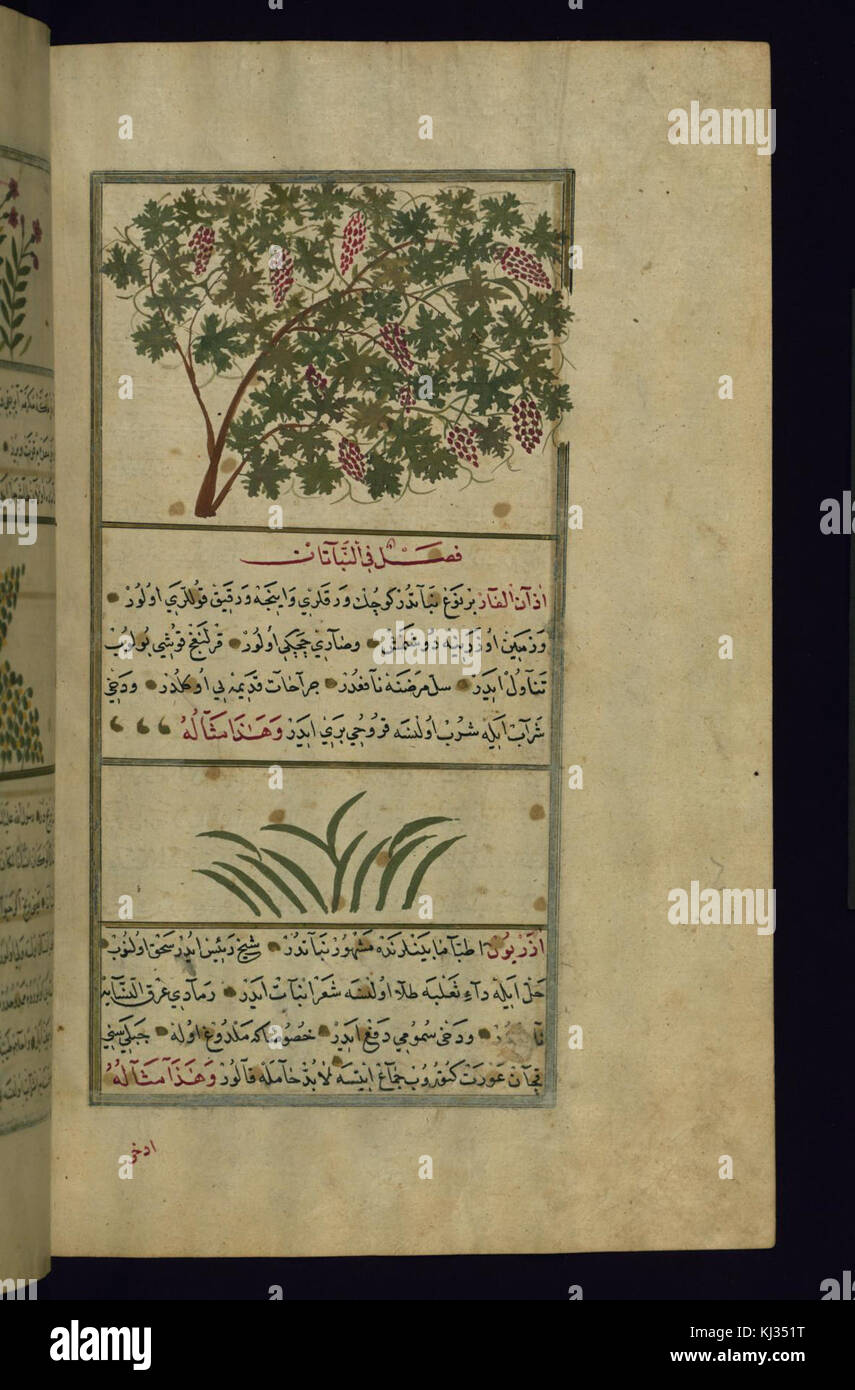 فصل في النباتات
اذان الفار بر نوع نباتدر كوچك ورقلري واينجه ورقيق قوللري اولور
وزمين اوزرينه دوشمش وصاري چچكي اولور قرلنغج قوشي بولوب
تناول ايدر سل مرضنه نافعدر جراحات قديمه يي اوكلدر ودخي
شراب ايله شرب اولنسه قروحي بري ايدر وهذا مثاله
اذريون اطبا مابينلرنده مشهور نباتدر شيخ رئيس ايدر سحق اولنوب
خل ايله داء ثعلبه طلا اولنسه شعر انبات ايدر رمادي عرق النسايه
ودخي سمومي دفع ايدر خصوصا كه ملدوغ اوله جبلي سني
قچان عورت كتوروب جماع ايتسه لابد حامله قالور وهذا مثاله
اذخر
alamy
alamy
Image ID: KJ351T
www.alamy.com